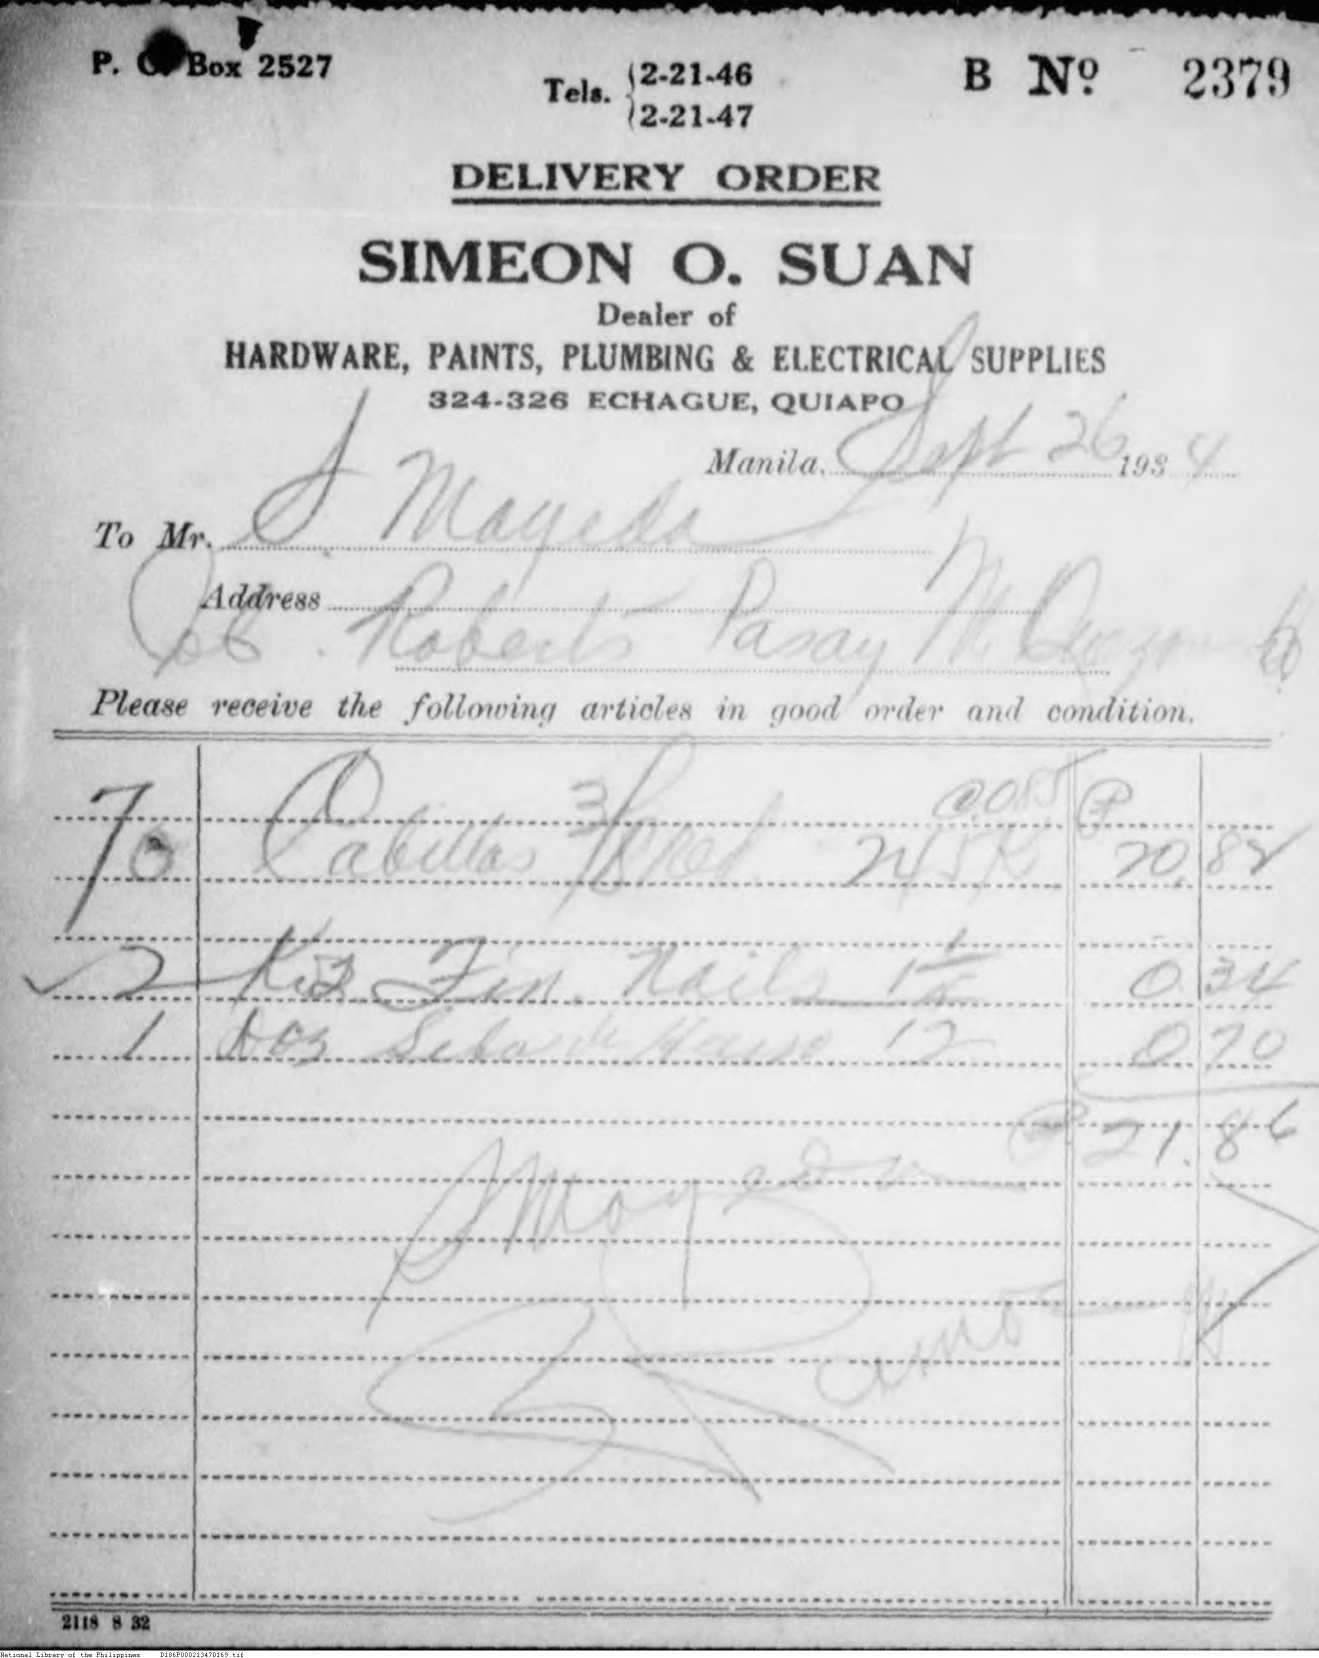 P. O. Box 2527
Tels. 2-21-46
2-21-47
B Nº 2379
DELIVERY ORDER
SIMEON O. SUAN
Dealer of
HARDWARE, PAINTS, PLUMBING & ELECTRICAL SUPPLIES
324-326 ECHAGUE, QUIAPO
Manila, Sept 26 1934
To Mr. S. Mayeda
Address
Roberts Pasay
Please receive the following articles in good order and condition.
@.085 ₱
70 Cabillas 3/8 245 K 20.82
2 Kis Fin. Nails 1 1/2 0.34
1 Doz 12 0.70
₱ 21.86
S Mayeda
2118 8 32
National Library of the Philippines D186P000213470169.tif